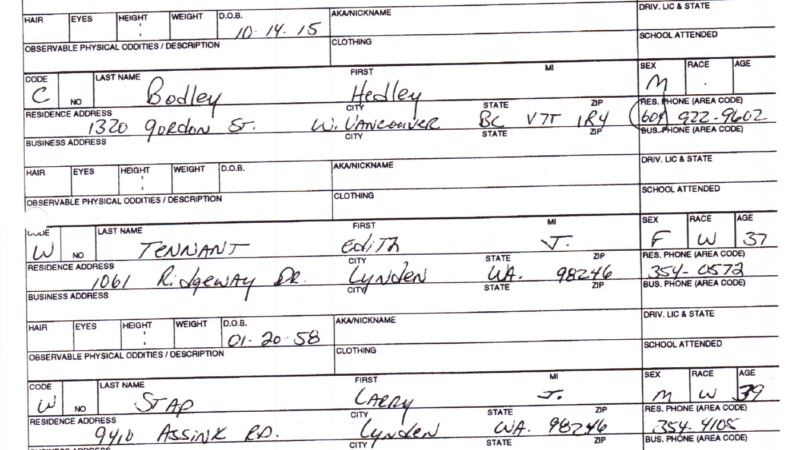 HAIR EYES HEIGHT WEIGHT D.O.B. AKA/NICKNAME DRIV. LIC & STATE
10-14-15
OBSERVABLE PHYSICAL ODDITIES / DESCRIPTION CLOTHING SCHOOL ATTENDED
CODE NO LAST NAME FIRST MI SEX RACE AGE
C Bodley Hedley M
RESIDENCE ADDRESS CITY STATE ZIP RES. PHONE (AREA CODE)
1320 Gordon St. W. Vancouver BC V7T 1R4 (604) 922-9602
BUSINESS ADDRESS CITY STATE ZIP BUS. PHONE (AREA CODE)
HAIR EYES HEIGHT WEIGHT D.O.B. AKA/NICKNAME DRIV. LIC & STATE
OBSERVABLE PHYSICAL ODDITIES / DESCRIPTION CLOTHING SCHOOL ATTENDED
CODE NO LAST NAME FIRST MI SEX RACE AGE
W TENNANT Edith J. F W 37
RESIDENCE ADDRESS CITY STATE ZIP RES. PHONE (AREA CODE)
1061 Ridgeway DR. Lynden WA. 98246 354-0572
BUSINESS ADDRESS CITY STATE ZIP BUS. PHONE (AREA CODE)
HAIR EYES HEIGHT WEIGHT D.O.B. AKA/NICKNAME DRIV. LIC & STATE
01-20-58
OBSERVABLE PHYSICAL ODDITIES / DESCRIPTION CLOTHING SCHOOL ATTENDED
CODE NO LAST NAME FIRST MI SEX RACE AGE
W STAP LARRY J. M W 39
RESIDENCE ADDRESS CITY STATE ZIP RES. PHONE (AREA CODE)
9410 ASSINK RD. Lynden WA. 98246 354-4105
BUSINESS ADDRESS CITY STATE ZIP BUS. PHONE (AREA CODE)